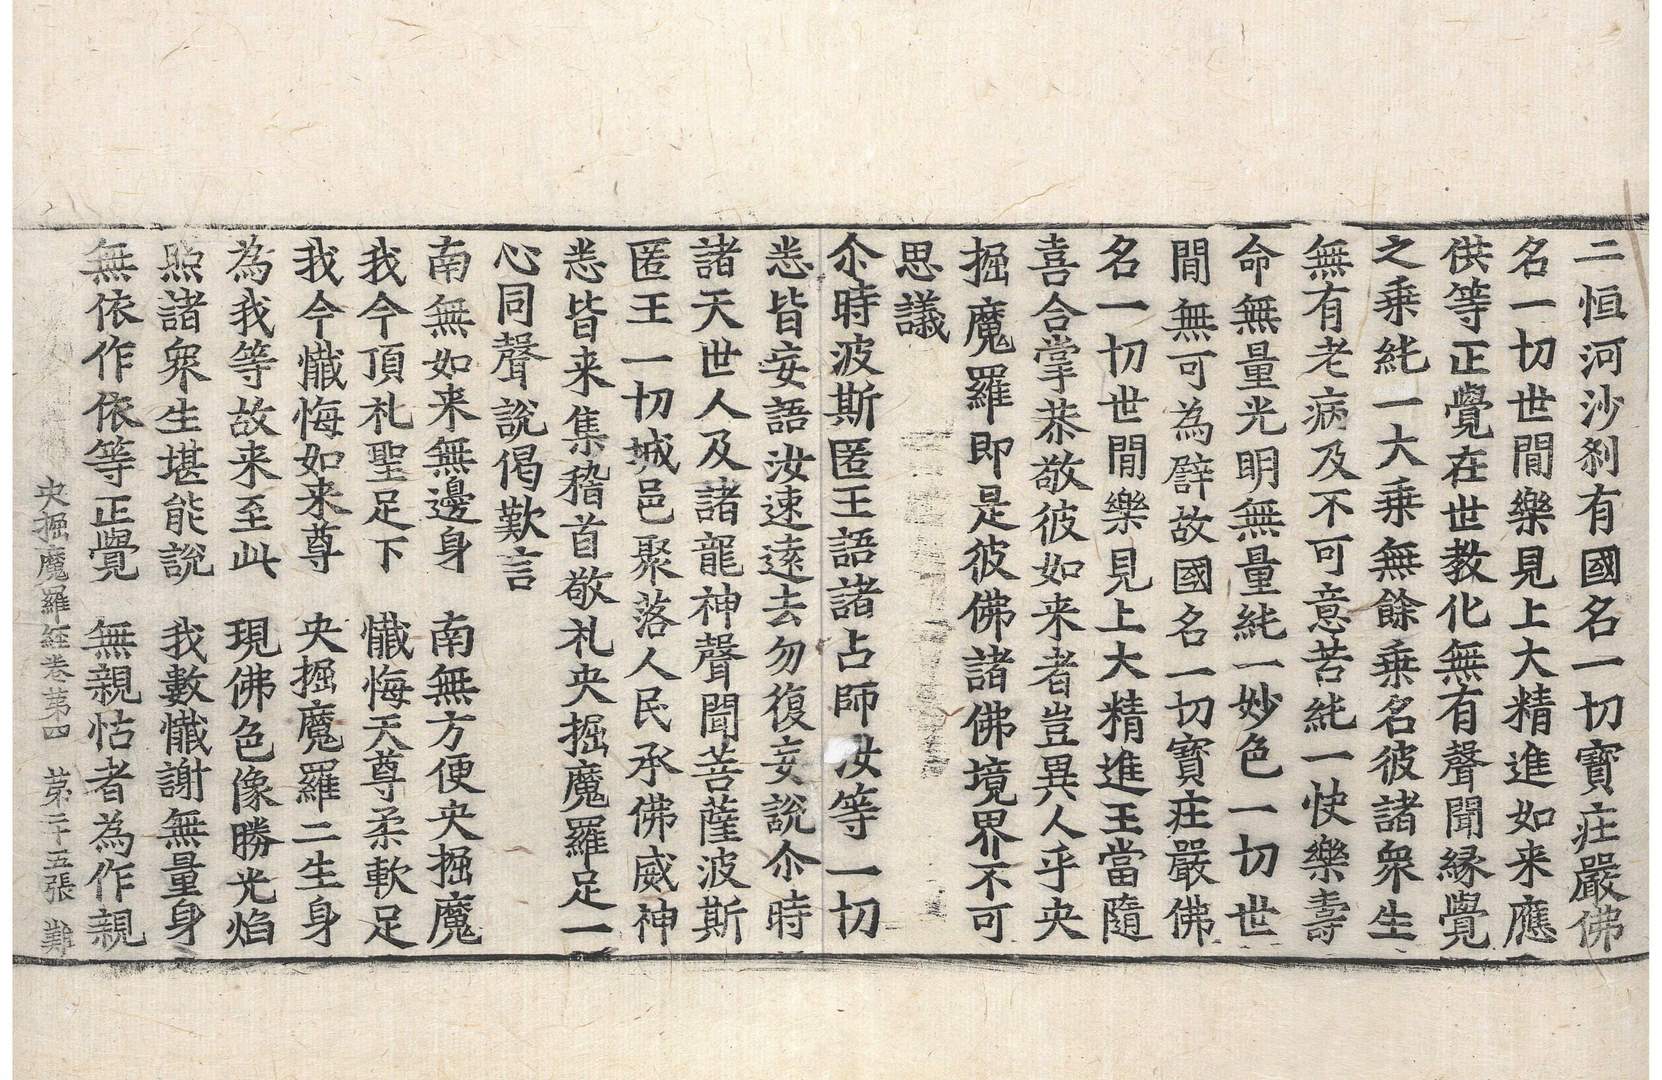 二恒河沙刹有國名一切寶庄嚴佛
名一切世閒樂見上大精進如来應
供等正覺在世教化無有聲聞縁覺
之乗純一大乗無餘乗名彼諸衆生
無有老病及不可意苦純一快樂壽
命無量光明無量純一妙色一切世
閒無可為譬故國名一切寶庄嚴佛
名一切世閒樂見上大精進王當隨
喜合掌恭敬彼如来者豈異人乎央
掘魔羅即是彼佛諸佛境界不可
思議
尒時波斯匿王語諸占師汝等一切
悉皆妄語汝速遠去勿復妄說尒時
諸天世人及諸龍神聲聞菩薩波斯
匿王一切城邑聚落人民承佛威神
悉皆来集稽首敬礼央掘魔羅足一
心同聲說偈歎言
南無如来無邊身　南無方便央掘魔
我今頂礼聖足下　懺悔天尊柔軟足
我今懺悔如来尊　央掘魔羅二生身
為我等故来至此　現佛色像勝光焰
照諸衆生堪能說　我數懺謝無量身
無依作依等正覺　無親怙者為作親
央掘魔羅經卷第四　第二十五張　難